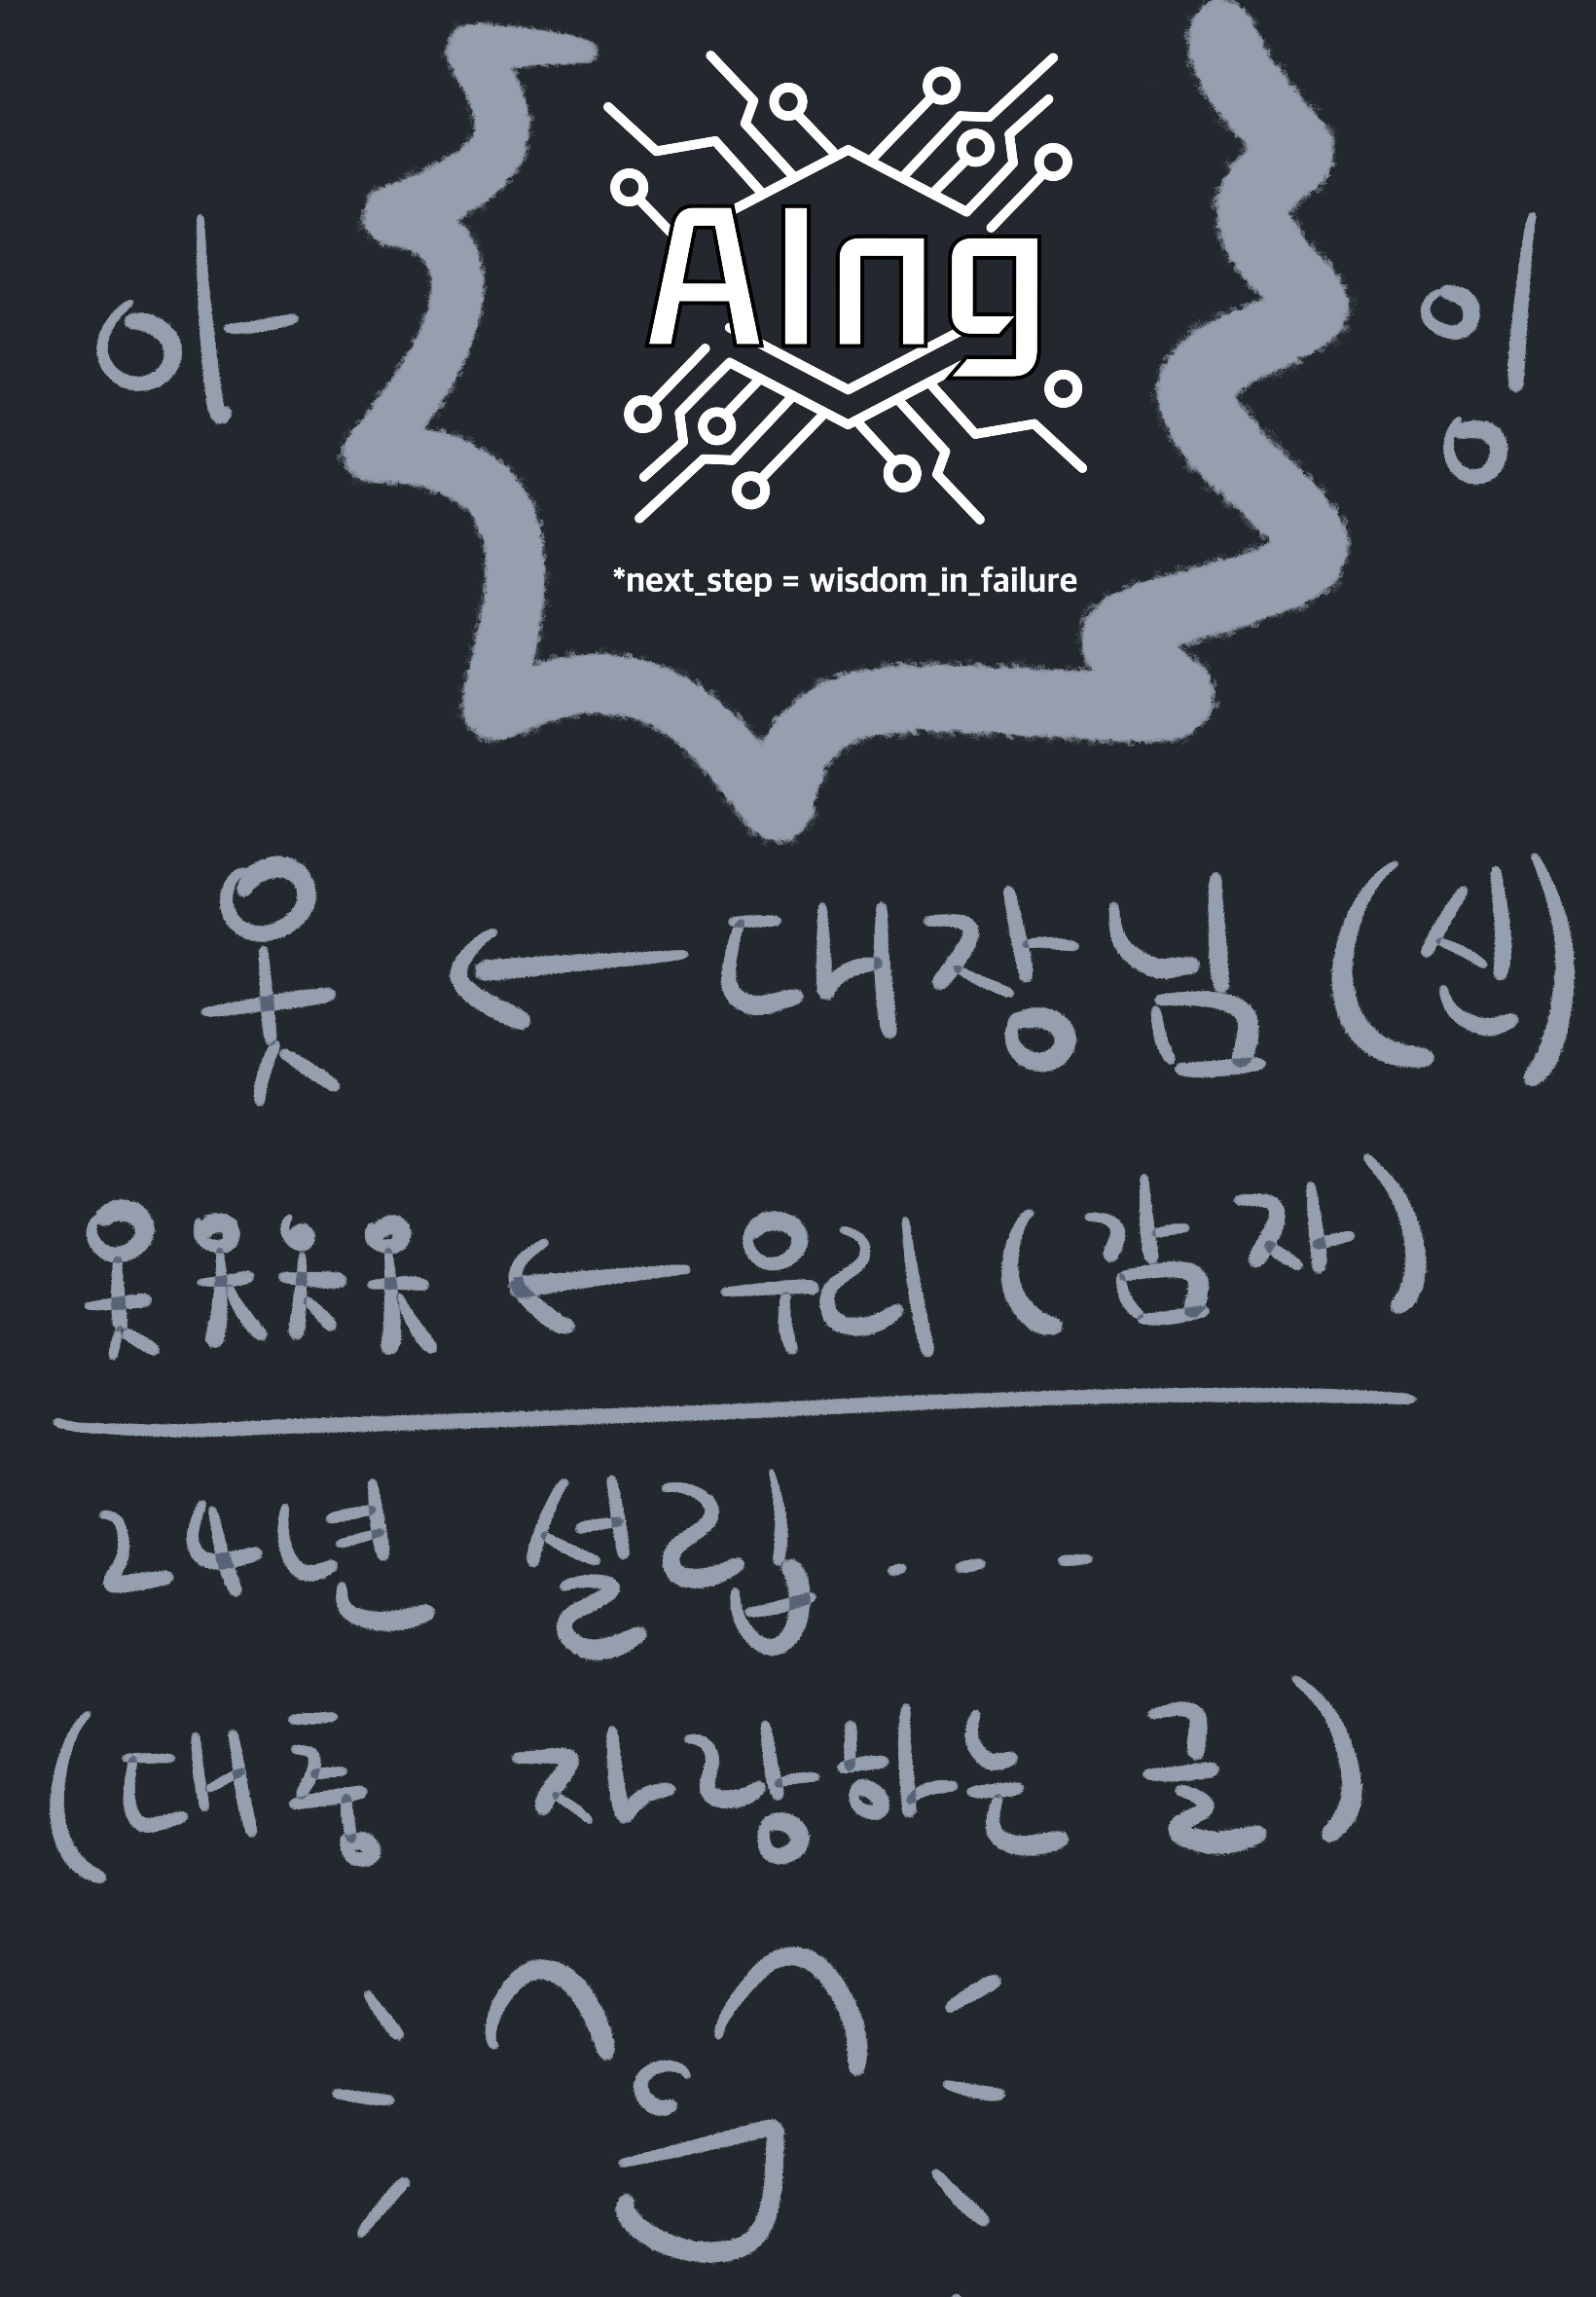 아 AIng 잉
*next_step = wisdom_in_failure
← 대장님 (신)
← 우리 (감자)
24년 설립...
(대충 자랑하는 글)